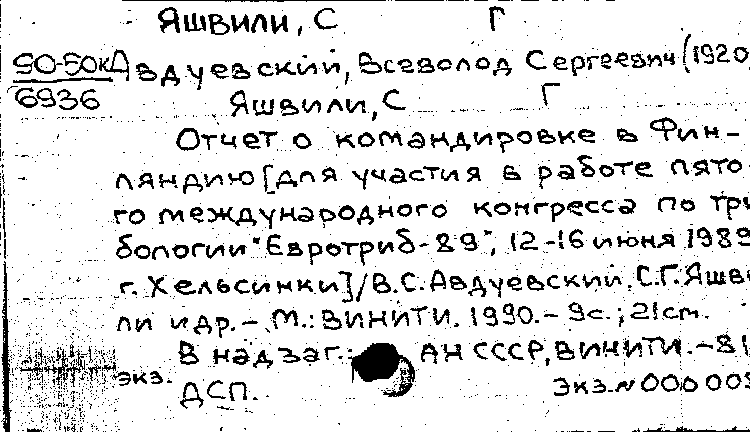 Яшвили, С Г
90-50кД Авдуевский, Всеволод Сергеевич (1920
6936 Яшвили, С Г
Отчет о командировке в Фин-
ляндию [для участия в работе пято
го международного конгресса по три
бологии "Евротриб-89", 12-16 июня 1989
г. Хельсинки]/В.С.Авдуевский, С.Г.Яшви
ли и др. - М.: ВИНИТИ. 1990. - 9с.; 21см.
В надзаг.: АН СССР, ВИНИТИ. - 81
экз.
ДСП. Экз.№000005